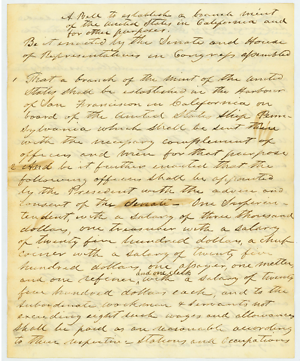 A Bill to establish a branch mint
of the United States in California and
for other purposes.
Be it enacted by the Senate and House
of Representatives in Congress assembled
That a branch of the Mint of the United
States shall be established in the Harbour
of San Francisco in California on
board of the United States Ship Penn-
sylvania which shall be sent there
with the necessary complement of
officers and men for that purpose
And be it further enacted that the
following officers shall be appointed
by the President with the advice and
consent of the Senate - One Superin-
tendent, with a salary of three thousand
dollars, one treasurer with a salary
of twenty five hundred dollars, a chief
coiner with a salary of twenty five
hundred dollars, one assayer, one melter
and one clerk
and one refiner, with a salary of twenty
five hundred dollars each, and to the
subordinate workmen & servants not
exceeding eight such wages and allowances
shall be paid as are reasonable according
to their respective stations and occupations